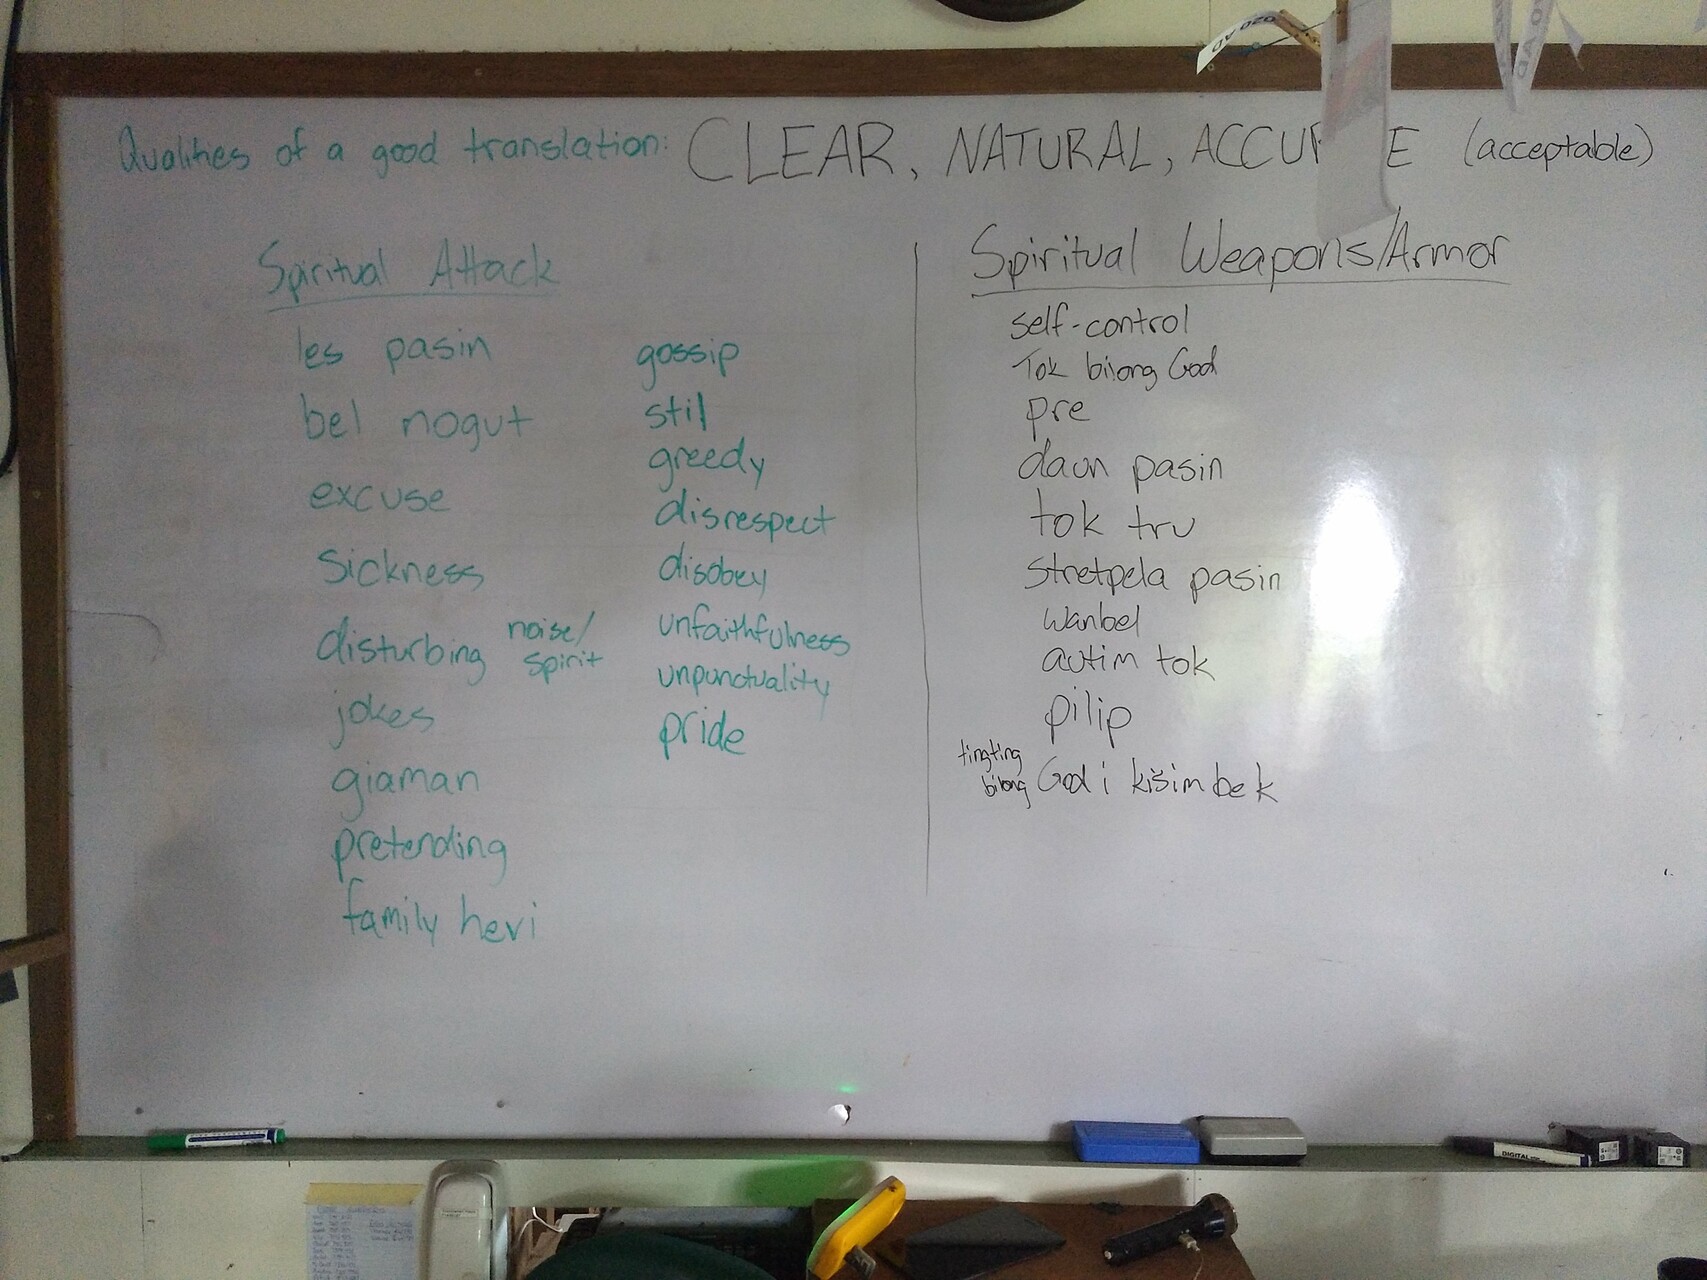 Qualities of a good translation: CLEAR, NATURAL, (acceptable)
Spiritual Attack
les pasin
bel nogut
excuse
Sickness
disturbing noise/
spirit
jokes
giaman
pretending
family hevi
gossip
stil
greedy
disrespect
disobey
unfaithfulness
unpunctuality
pride
Spiritual Weapons/Armor
self-control
Tok bilong God
pre
daun pasin
tok tru
stretpela pasin
wanbel
autim tok
pilip
tingting
bilong God i kisim bek
DIGITAL